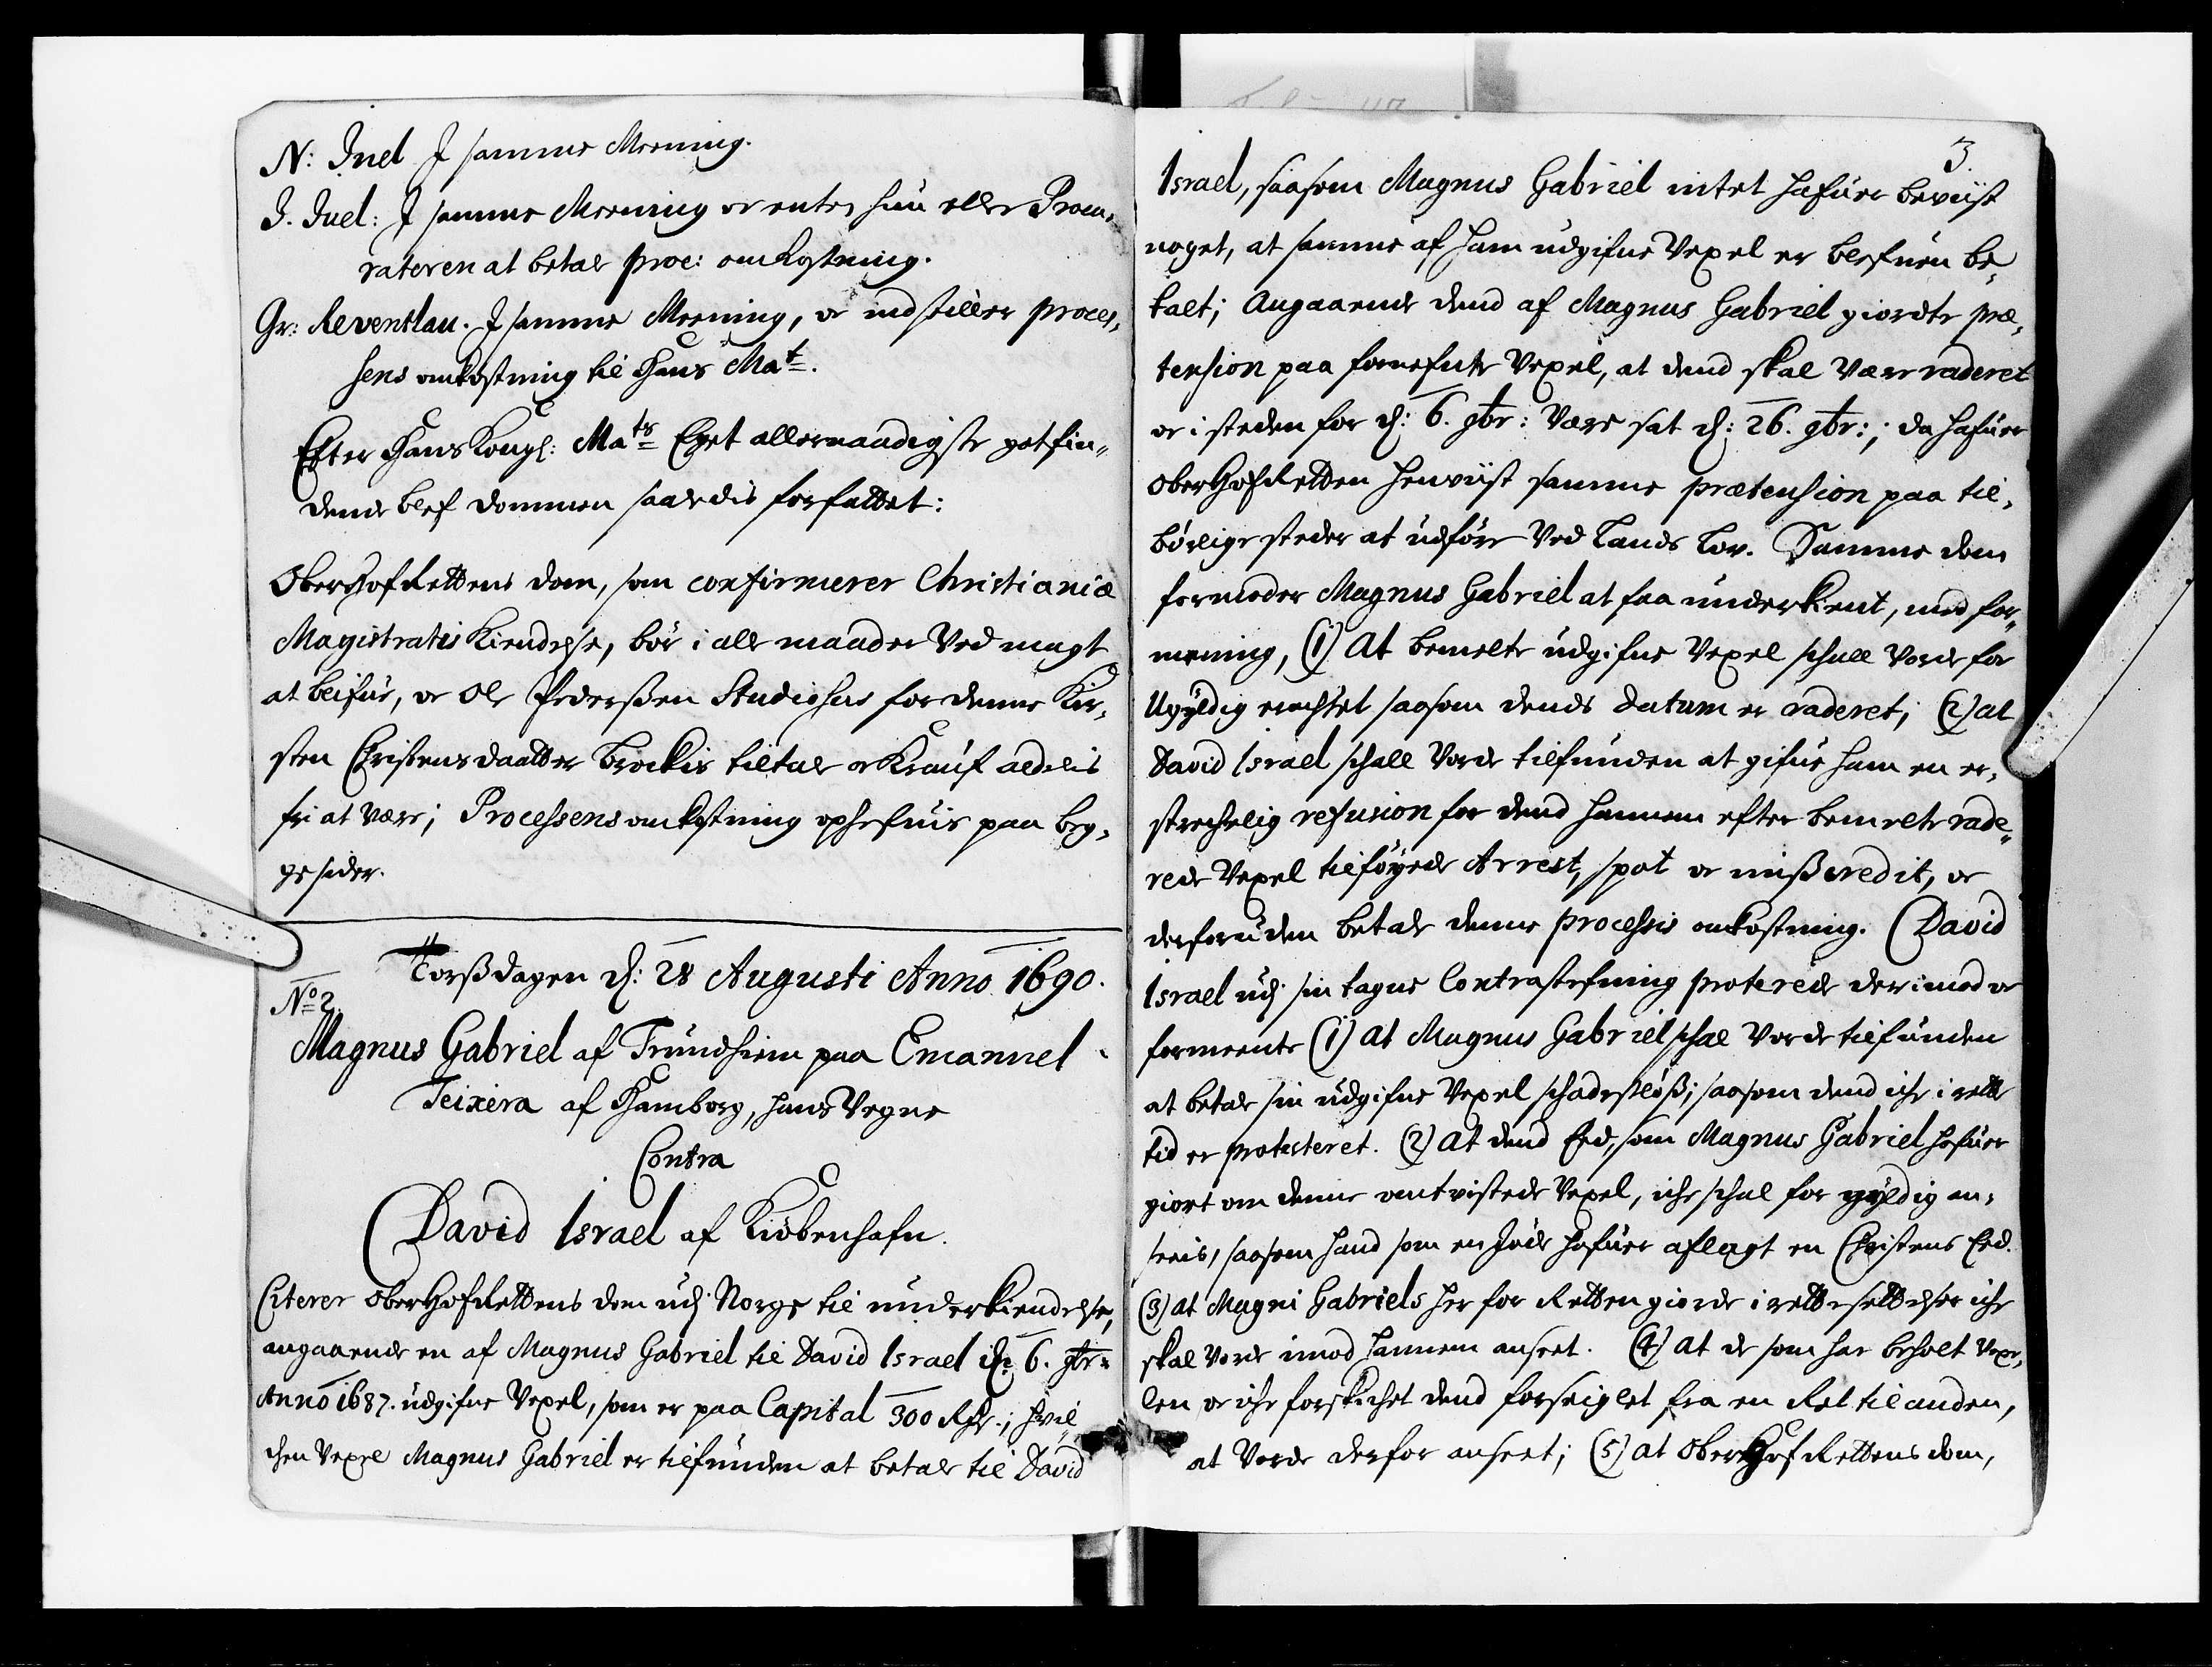 N: Juel J samme Meening.
J. Juel: J samme Meening oc enten hun eller Procu-
ratoren at betale proc: omkostning.
Gr: Reventlau. J samme Meening, oc indstiller proces-
sens omkostning til Hans Mat.
Efter Hans Kongl: Mats Eget allernaadigste gotfin-
dende blef dommen saaledis forfattet:
OberHofRettens dom, som confirmerer Christianiæ
Magistratis Kiendelse, bör i alle maader Ved magt
at blifue, oc Ole Pederssen Studiosus for denne Kir-
sten Christensdaatter Brockis tiltale oc Krauf aldelis
fri at være; Processens omkostning ophefuis paa beg-
ge sider.
Torssdagen d: 28 Augusti Anno 1690.
No 2.
Magnus Gabriel af Trundhiem paa Emanuel
Teixera af Hamborg, hans Vegne
Contra
David Israel af Kiöbenhafn.
Citerer OberHofRettens dom udj Norge til underkiendelse,
angaaende en af Magnus Gabriel til David Israel d: 6. 9br:
Anno 1687. udgifne Vexel, som er paa Capital 300 Rdr.; hvil-
chen Vexel Magnus Gabriel er tilfunden at betale til David
3.
Israel, saasom Magnus Gabriel intet hafuer beviist
noget, at samme af ham udgifne Vexel er blefuen be-
talt; Angaaende dend af Magnus Gabriel giordte præ-
tension paa fornefnte Vexel, at dend skal Være raderet
oc i steden for d: 6. 9br: Være sat d: 26. 9br:; da hafuer
OberHofRetten henviist samme prætension paa til-
börlige steder at udföre Ved Lands Lov. Samme dom
formoder Magnus Gabriel at faa underkient, med for-
meening, (1) At bemelte udgifne Vexel schall Vorde for
Ugyldig erachtet saasom dends datum er raderet; (2) at
David Israel schall Vorde tilfunden at gifue ham en er-
strechelig refusion for dend hannem efter bemelte rade-
rede Vexel tilföyede Arrest, spot oc misscredit, oc
desforuden betale denne processis omkostning. David
Israel udj sin tagne Contrastefning proterede derimod oc
formeente (1) at Magnus Gabriel schal Vorde tilfunden
at betale sin udgifne Vexel schadeslöss; saasom dend iche i rette
tid er protesteret. (2) At dend Eed, som Magnus Gabriel hafuer
giort om denne omtvistede Vexel, iche schal for gyldig an-
seeis, saasom hand som en Jöde hafuer aflagt en Christens Eed.
(3) at Magni Gabriels her for Retten giorde i rettesettelser iche
skal Vorde imod hannem anseet. (4) at de som har beholt Vexe-
len oc iche forskichet dend forseiglet fra en Ret til anden,
at Vorde derfor anseet; (5) at OberHofRettens dom,